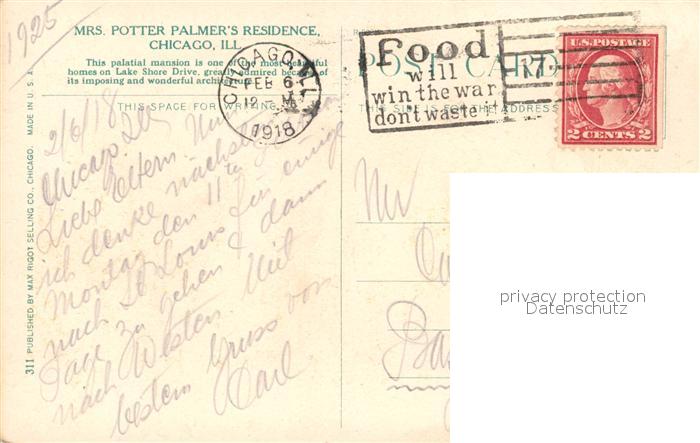 1925
MRS. POTTER PALMER'S RESIDENCE,
CHICAGO, ILL.
This palatial mansion is one of the most beautiful
homes on Lake Shore Drive, greatly admired because of
its imposing and wonderful architecture.
THIS SPACE FOR WRITING
311 PUBLISHED BY MAX RIGOT SELLING CO., CHICAGO. MADE IN U. S. A.
CHICAGO, ILL
FEB 6
12
1918
Food
will
win the war
don't waste it
POST CARD
THIS SIDE FOR THE ADDRESS
U.S. POSTAGE
2 CENTS 2
2/6/18
Chicago Ills
Liebe Eltern
ich denke nächsten
Montag den 11ten für einige
nach St Louis
Tage zu gehen & dann
nach Westen Mit
bestem Gruss von
Karl
Mr
privacy protection
Datenschutz